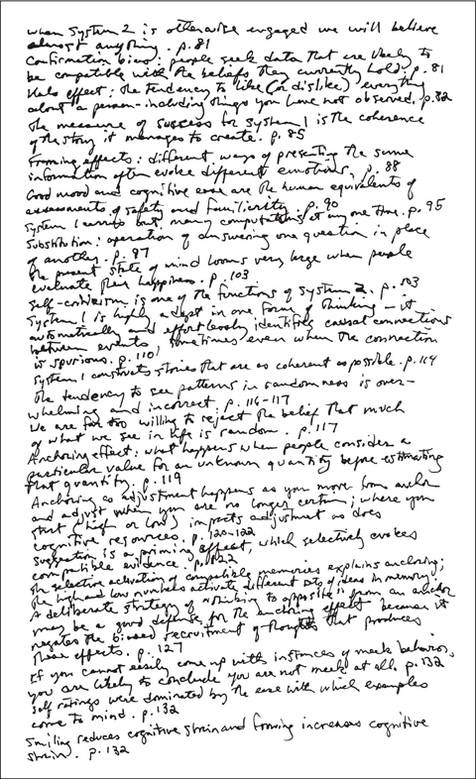 when System 2 is otherwise engaged we will believe
almost anything. p. 81
Confirmation bias: people seek data that are likely to
be compatible with the beliefs they currently hold. p. 81
Halo effect: the tendency to like (or dislike) everything
about a person - including things you have not observed. p. 82
The measure of success for System 1 is the coherence
of the story it manages to create. p. 85
Framing effects: different ways of presenting the same
information often evoke different emotions. p. 88
Good mood and cognitive ease are the human equivalents of
assessments of safety and familiarity. p. 90
System 1 carries out many computations at any one time. p. 95
Substitution: operation of answering one question in place
of another. p. 97
The present state of mind looms very large when people
evaluate their happiness. p. 103
Self-criticism is one of the functions of System 2. p. 103
System 1 is highly adept in one form of thinking - it
automatically and effortlessly identifies causal connections
between events, sometimes even when the connection
is spurious. p. 110
System 1 constructs stories that are as coherent as possible. p. 114
The tendency to see patterns in randomness is over-
whelming and incorrect. p. 116-117
We are far too willing to reject the belief that much
of what we see in life is random. p. 117
Anchoring effect: what happens when people consider a
particular value for an unknown quantity before estimating
that quantity. p. 119
Anchoring as adjustment happens as you move from anchor
and adjust when you are no longer certain; where you
start (high or low) impacts adjustment as does
cognitive resources. p. 120-122
Suggestion is a priming effect, which selectively evokes
compatible evidence. p. 122
The selective activating of compatible memories explains anchoring;
the high and low numbers activate different sets of ideas in memory;
A deliberate strategy of "thinking to opposite" from an anchor
may be a good defense for the anchoring effect because it
negates the biased recruitment of thoughts that produces
these effects. p. 127
If you cannot easily come up with instances of meek behavior,
you are likely to conclude you are not meek at all. p. 132
Self ratings were dominated by the ease with which examples
come to mind. p. 132
Smiling reduces cognitive strain and frowning increases cognitive
strain. p. 132